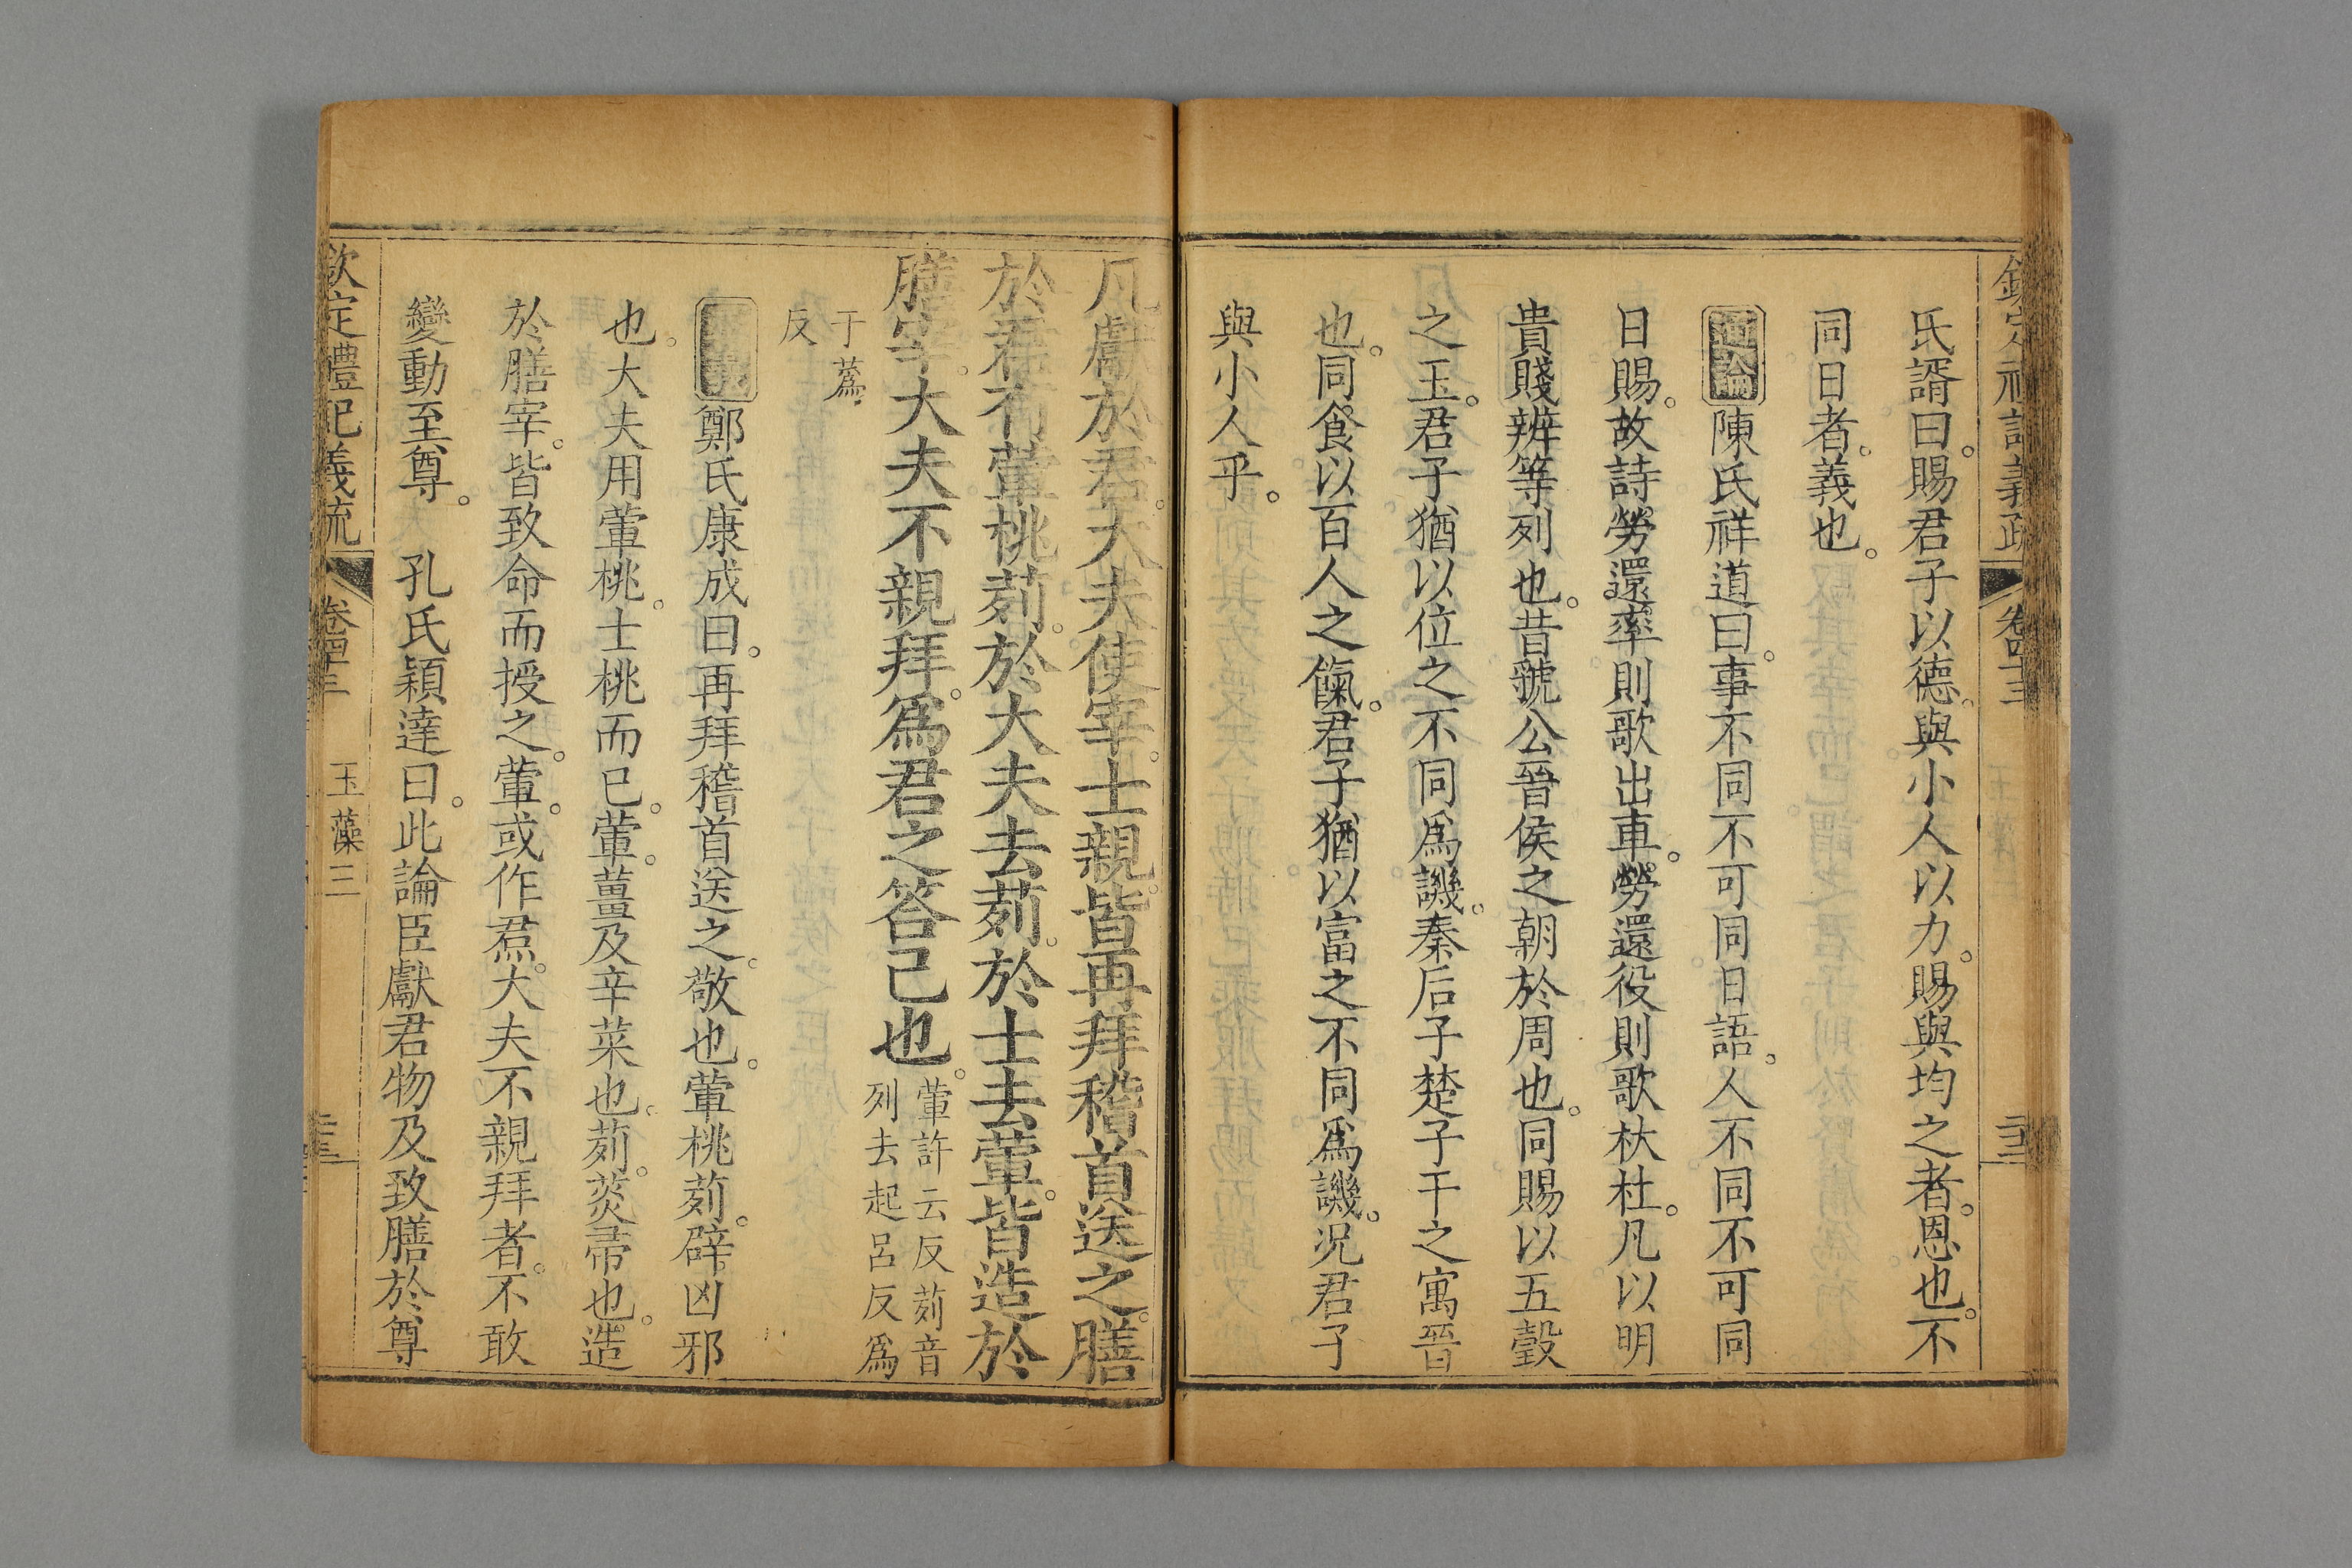 欽定禮記義疏 卷四十三
氏諝曰。賜君子以德。與小人以力。賜與均之者。恩也。不
同日者。義也。
通論 陳氏祥道曰。事不同不可同日語。人不同不可同
日賜。故詩勞還率則歌出車。勞還役則歌杕杜。凡以明
貴賤辨等列也。昔虢公晉侯之朝於周也。同賜以五瑴
之玉。君子猶以位之不同爲譏。秦后子楚子干之寓晉
也。同食以百人之餼。君子猶以富之不同爲譏。況君子
與小人乎。
凡獻於君。大夫使宰。士親。皆再拜稽首送之。膳
於君。有葷桃茢。於大夫去茢。於士去葷。皆造於
膳宰。大夫不親拜。爲君之答己也。
葷許云反茢音
列去起呂反爲
于蒍
反
鄭氏康成曰。再拜稽首送之。敬也。葷桃茢。辟凶邪
也。大夫用葷桃。士桃而已。葷。薑及辛菜也。茢。菼帚也。造
於膳宰。皆致命而授之。葷。或作焄。大夫不親拜者。不敢
變動至尊。 孔氏穎達曰。此論臣獻君物及致膳於尊
欽定禮記義疏 卷四十三 玉藻三